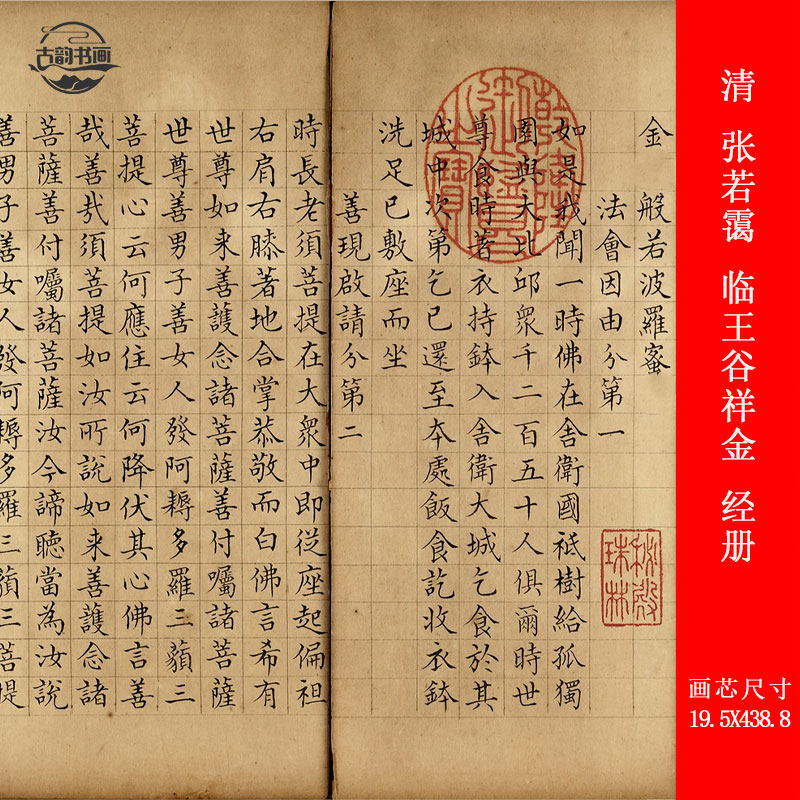 古韵书画
清 张若霭 临王谷祥金 经册
画芯尺寸
19.5X438.8
金 般若波羅蜜
法會因由分第一
如是我聞一時佛在舍衛國祇樹給孤獨
園與大比邱眾千二百五十人俱爾時世
尊食時著衣持鉢入舍衛大城乞食於其
城中次第乞已還至本處飯食訖收衣鉢
洗足已敷座而坐
善現啟請分第二
時長老須菩提在大眾中即從座起偏袒
右肩右膝著地合掌恭敬而白佛言希有
世尊如来善護念諸菩薩善付囑諸菩薩
世尊善男子善女人發阿耨多羅三藐三
菩提心云何應住云何降伏其心佛言善
哉善哉須菩提如汝所說如来善護念諸
菩薩善付囑諸菩薩汝今諦聽當為汝說
善男子善女人發阿耨多羅三藐三菩提
秘殿
珠林